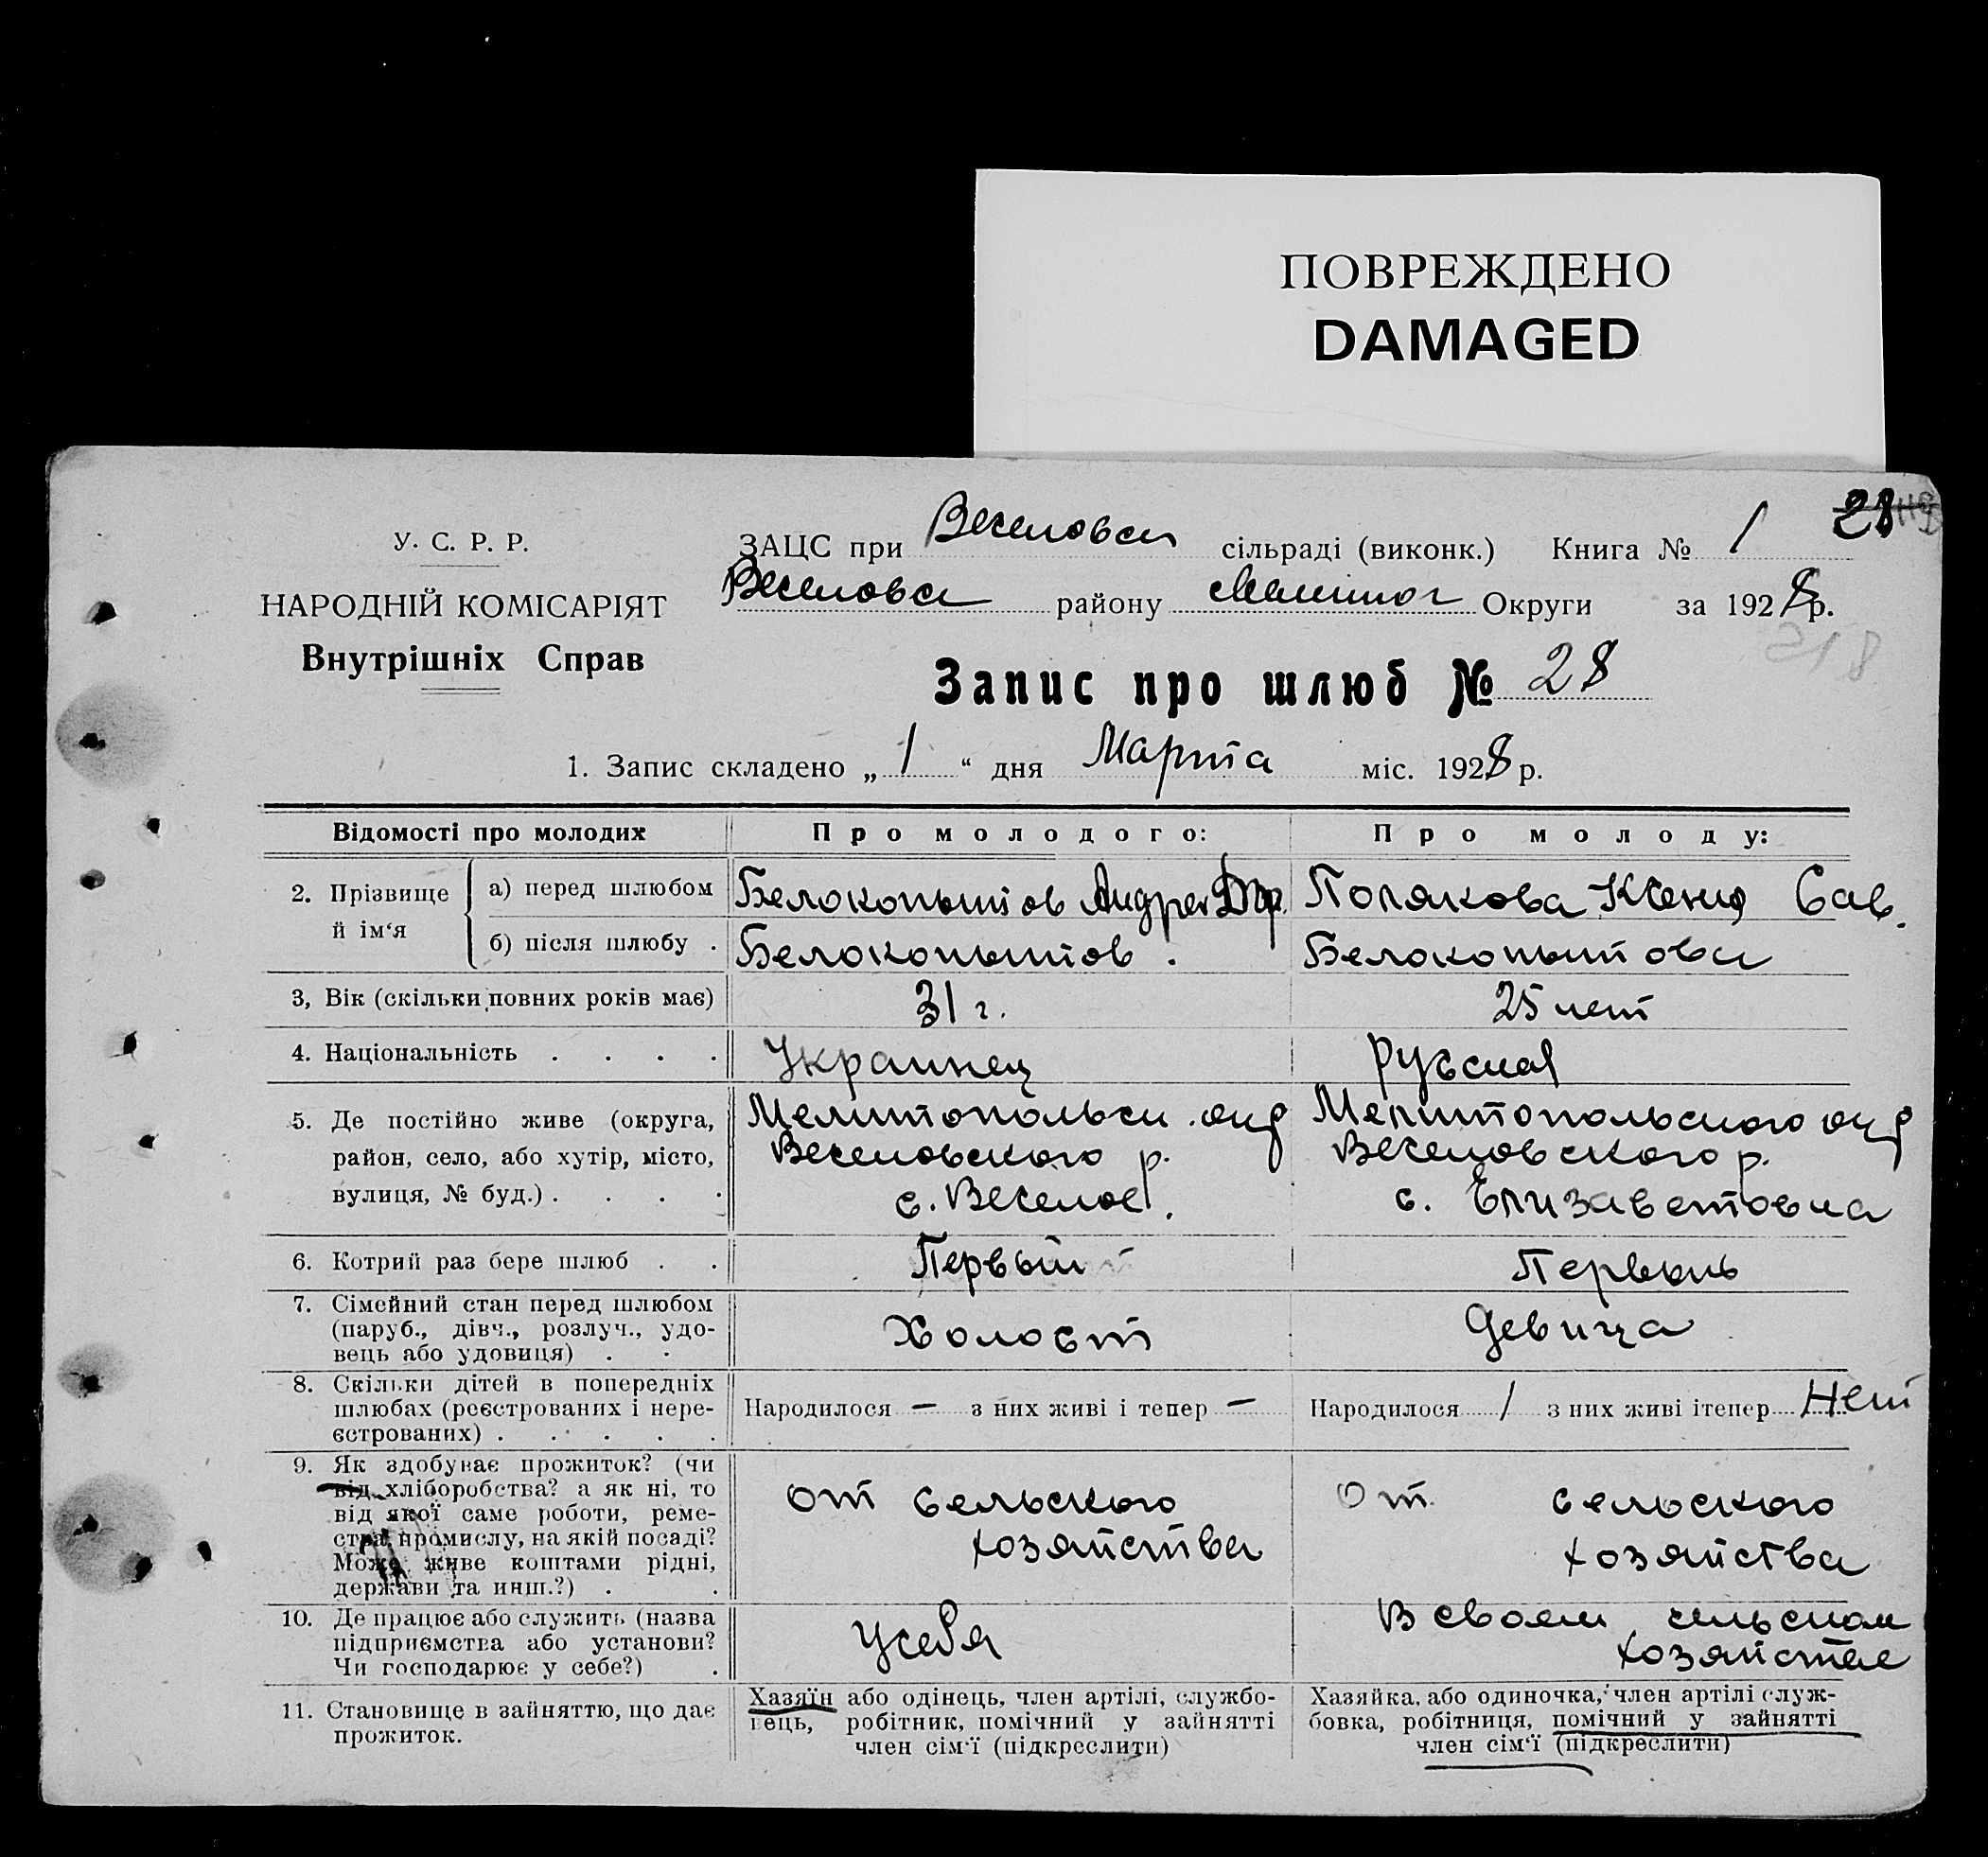 ПОВРЕЖДЕНО
DAMAGED
28
У. С. Р. Р.
НАРОДНІЙ КОМІСАРІЯТ
Внутрішніх Справ
ЗАЦС при Веселовск сільраді (виконк.) Книга № 1
Веселовск району Мелитоп Округи за 1928 р.
318
Запис про шлюб № 28
1. Запис складено „ 1 “ дня Марта міс. 1928 р.
Відомості про молодих
Про молодого:
Про молоду:
2. Прізвище й ім‘я
а) перед шлюбом
Белокопытов Андрей Дмр.
Полякова Ксения Сав.
б) після шлюбу .
Белокопытов.
Белокопытова
3, Вік (скільки повних років має)
31 г.
25 лет
4. Національність . . . .
Украинец
Русская
5. Де постійно живе (округа,
район, село, або хутір, місто,
вулиця, № буд.) . . . .
Мелитопольск. окр
Веселовского р.
с. Веселое.
Мелитопольского окр
Веселовского р.
с. Елизаветовка
6. Котрий раз бере шлюб . .
Первый
Первый
7. Сімейний стан перед шлюбом
(паруб., дівч., розлуч., удо-
вець або удовиця) . .
Холост
Девица
8. Скільки дітей в попередніх
шлюбах (реєстрованих і нере-
єстрованих) . . . . .
Народилося — з них живі і тепер —
Народилося 1 з них живі ітепер Нет
9. Як здобуває прожиток? (чи
від хліборобства? а як ні, то
від якої саме роботи, реме-
ства, промислу, на якій посаді?
Може живе коштами рідні,
держави та инш.?) . .
От сельского
хозяйства
От сельского
хозяйства
10. Де працює або служить (назва
підприємства або установи?
Чи господарює у себе?) .
У себя
В своем сельском
хозяйстве
11. Становище в зайняттю, що дає
прожиток.
Хазяїн або одінець, член артілі, службо-
вець, робітник, помічний у зайнятті
член сім‘ї (підкреслити)
Хазяйка, або одиночка, член артілі служ-
бовка, робітниця, помічний у зайнятті
член сім‘ї (підкреслити)